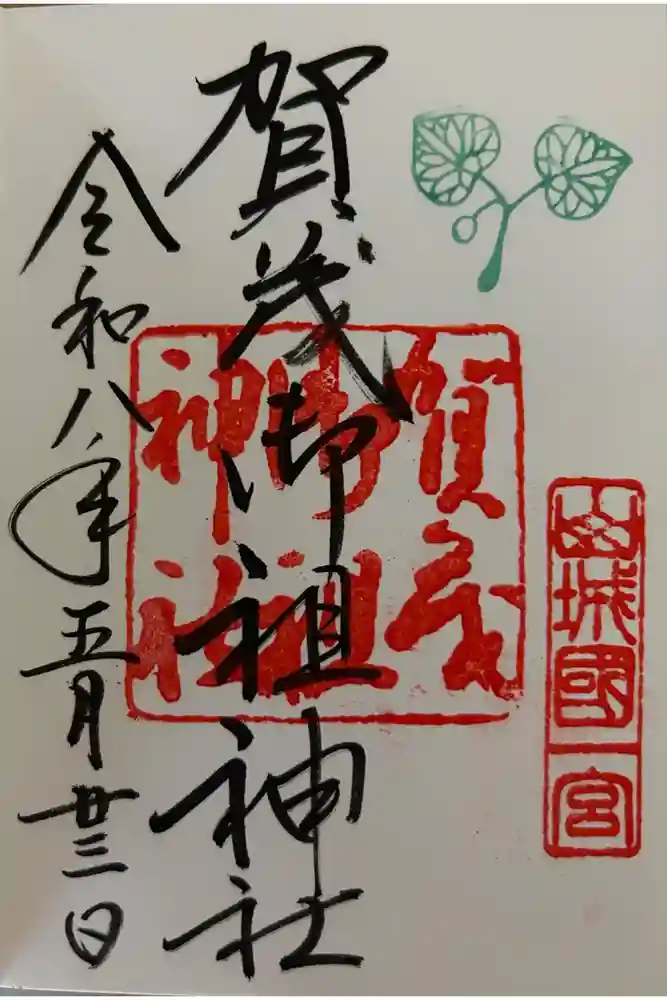 山城國一宮
賀茂御祖神社
賀茂御祖神社
令和八年五月廿三日